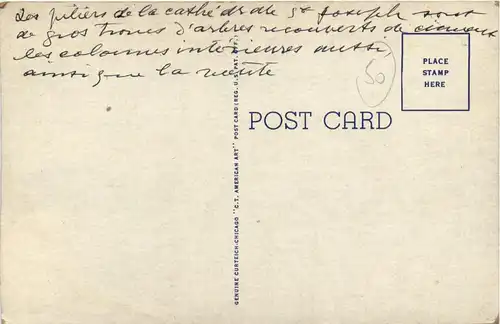 Les piliers de la cathédrale St Joseph sont
de gros troncs d'arbres recouverts de ciment
les colonnes intérieures aussi,
ainsi que la voûte
50
PLACE
STAMP
HERE
POST CARD
GENUINE CURTEICH-CHICAGO "C.T. AMERICAN ART" POST CARD (REG. U.S. PAT. OFF.)